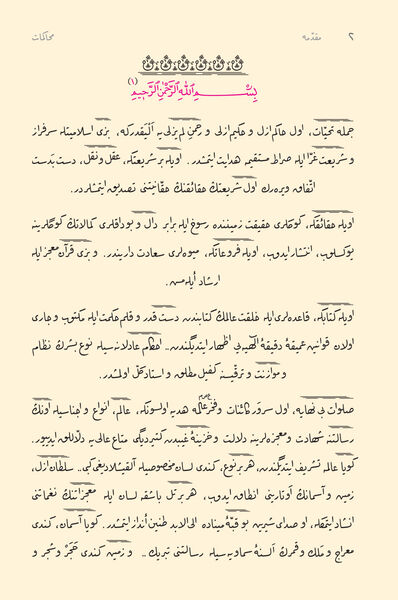 ٢ مقدّمه محاكمات
بِسْمِ اللهِ الرَّحْمٰنِ الرَّحِيمِ (١)
جمله تحيّات، اول حاكم ازل و حكيم ازلى و رحمن لم يزلى يه أليقدركه، بزى اسلاميتله سرفراز
و شريعت غرّا ايله صراط مستقيمه هدايت ايتمشدر. اويله بر شريعتكه، عقل و نقل، دست بدست
اتّفاق ويره رك اول شريعتك حقائقنك حقّانيتنى تصديق ايتمشلردر.
اويله حقائقكه، كوكلرى حقيقت زميننده رسوخ ايله برابر دال و بوداقلرى كمالاتك كوكلرينه
يوكسلوب، انتشار ايدوب، اويله فروعاتكه، ميوه لرى سعادت داريندر. و بزى قرآن معجز ايله
ارشاد أيله مش.
اويله كتابكه، قاعده لرى ايله خلقت عالمك كتابندن دست قدر و قلم حكمت ايله مكتوب و جارى
اولان قوانين عميقۀ دقيقۀ الٰهيه يى اظهار ايتديگندن.. احكام عادلانه سيله نوع بشرك نظام
و موازنت و ترقّيسنه كفيل مطلق و استاد كلّ اولمشدر.
صلوات بى نهايه، اول سرور كائنات و فخر عالمه هديه اولسونكه، عالم، انواع و اجناسيله اونك
رسالتنه شهادت و معجزه لرينه دلالت و خزينۀ غيبدن كتيرديگى متاع عالى يه دلاللق ايدييور.
كويا عالمه تشريف ايتديگندن، هر بر نوع، كندى لسان مخصوصيله آلقيشلاديغى كبى.. سلطان ازل،
زمين و آسمانك اوتارينى انطاق ايدوب، هر بر تل باشقه لسان ايله معجزاتنك نغماتنى
انشاد ايتمكله، او صداى شيرين بو قبّۀ ميناده الى الابد طنين أنداز ايتمشدر. كويا آسمان، كندى
معراج و ملك و قمرك ألسنۀ سماويه سيله رسالتنى تبريك.. و زمين كندى حجر و شجر و